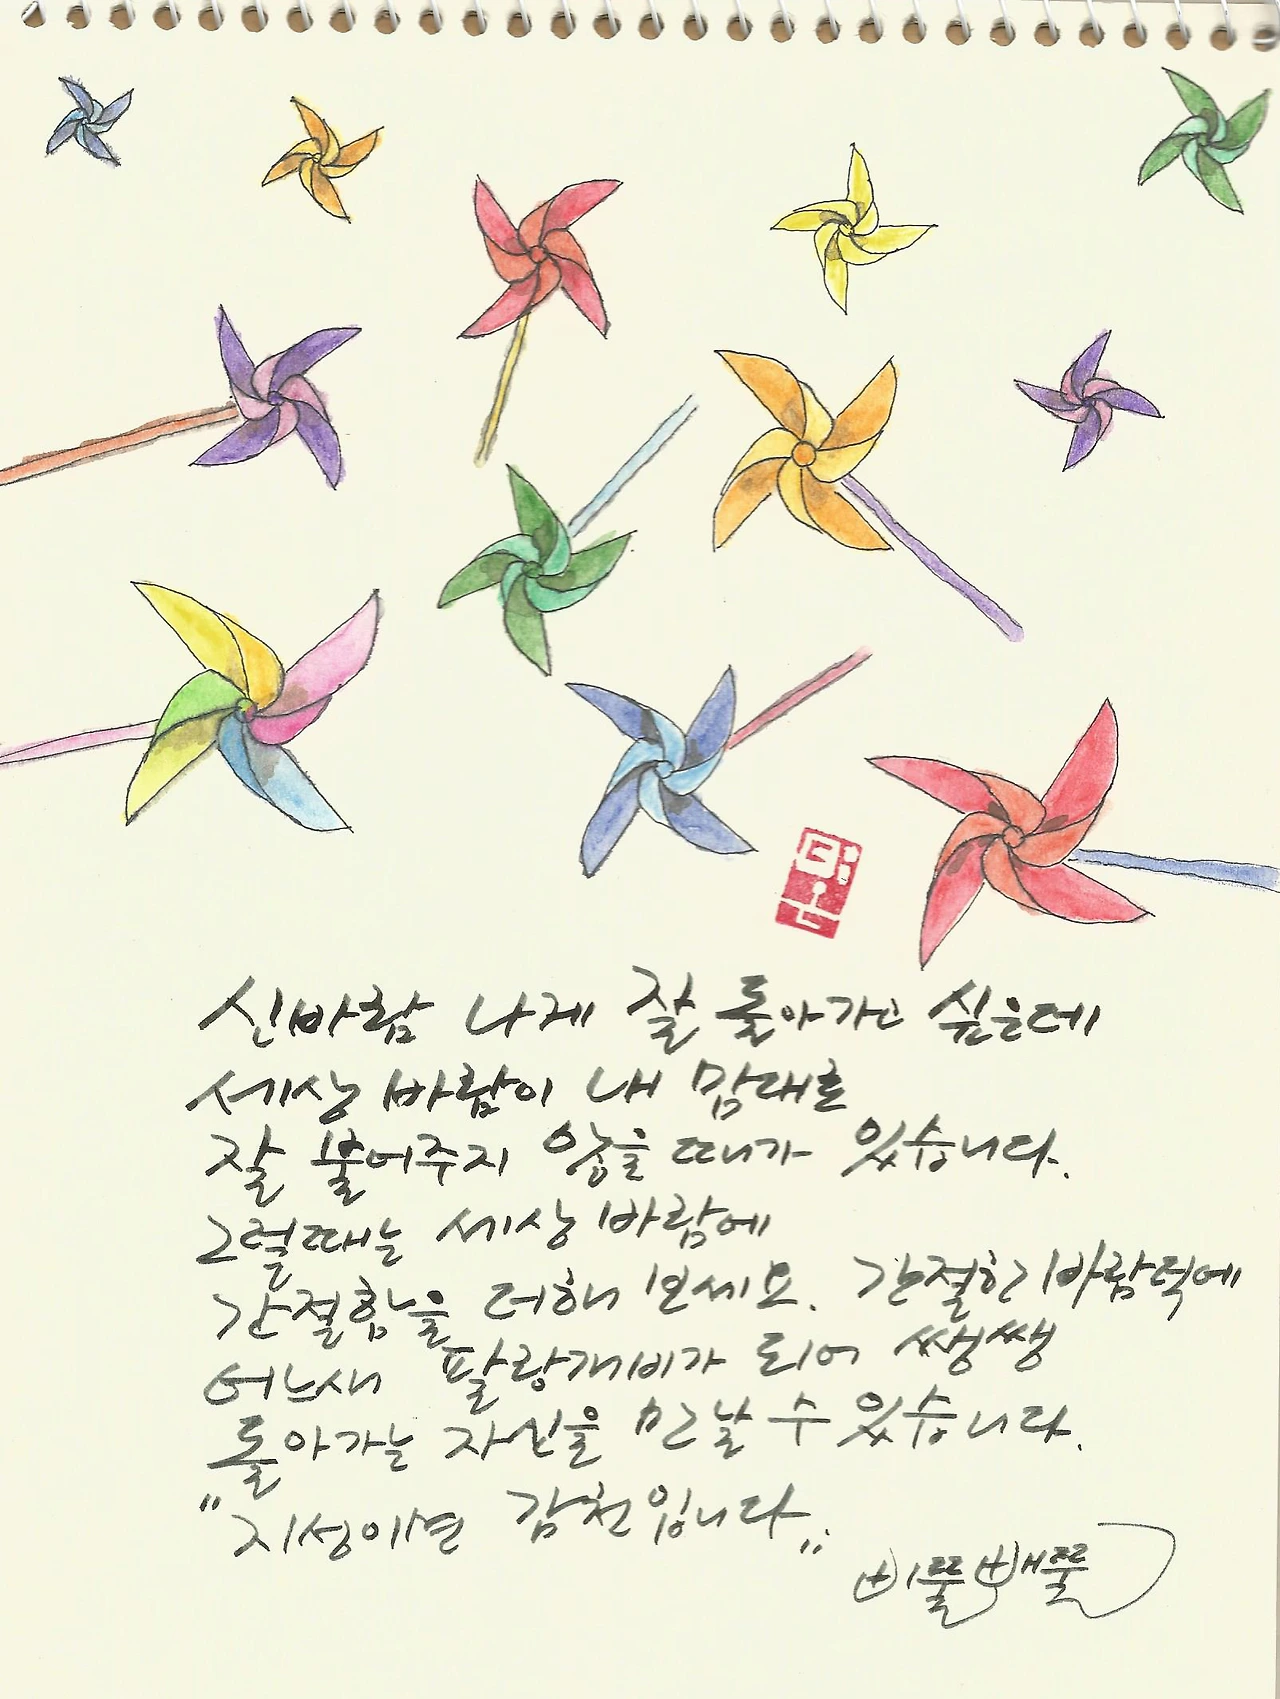 신바람 나게 잘 돌아가고 싶은데
세상 바람이 내 맘대로
잘 불어주지 않을 때가 있습니다.
그럴때는 세상 바람에
간절함을 더해 보세요. 간절한 바람덕에
어느새 팔랑개비가 되어 쌩쌩
돌아가는 자신을 만날 수 있습니다.
"지성이면 감천입니다."
삐뚤빼뚤